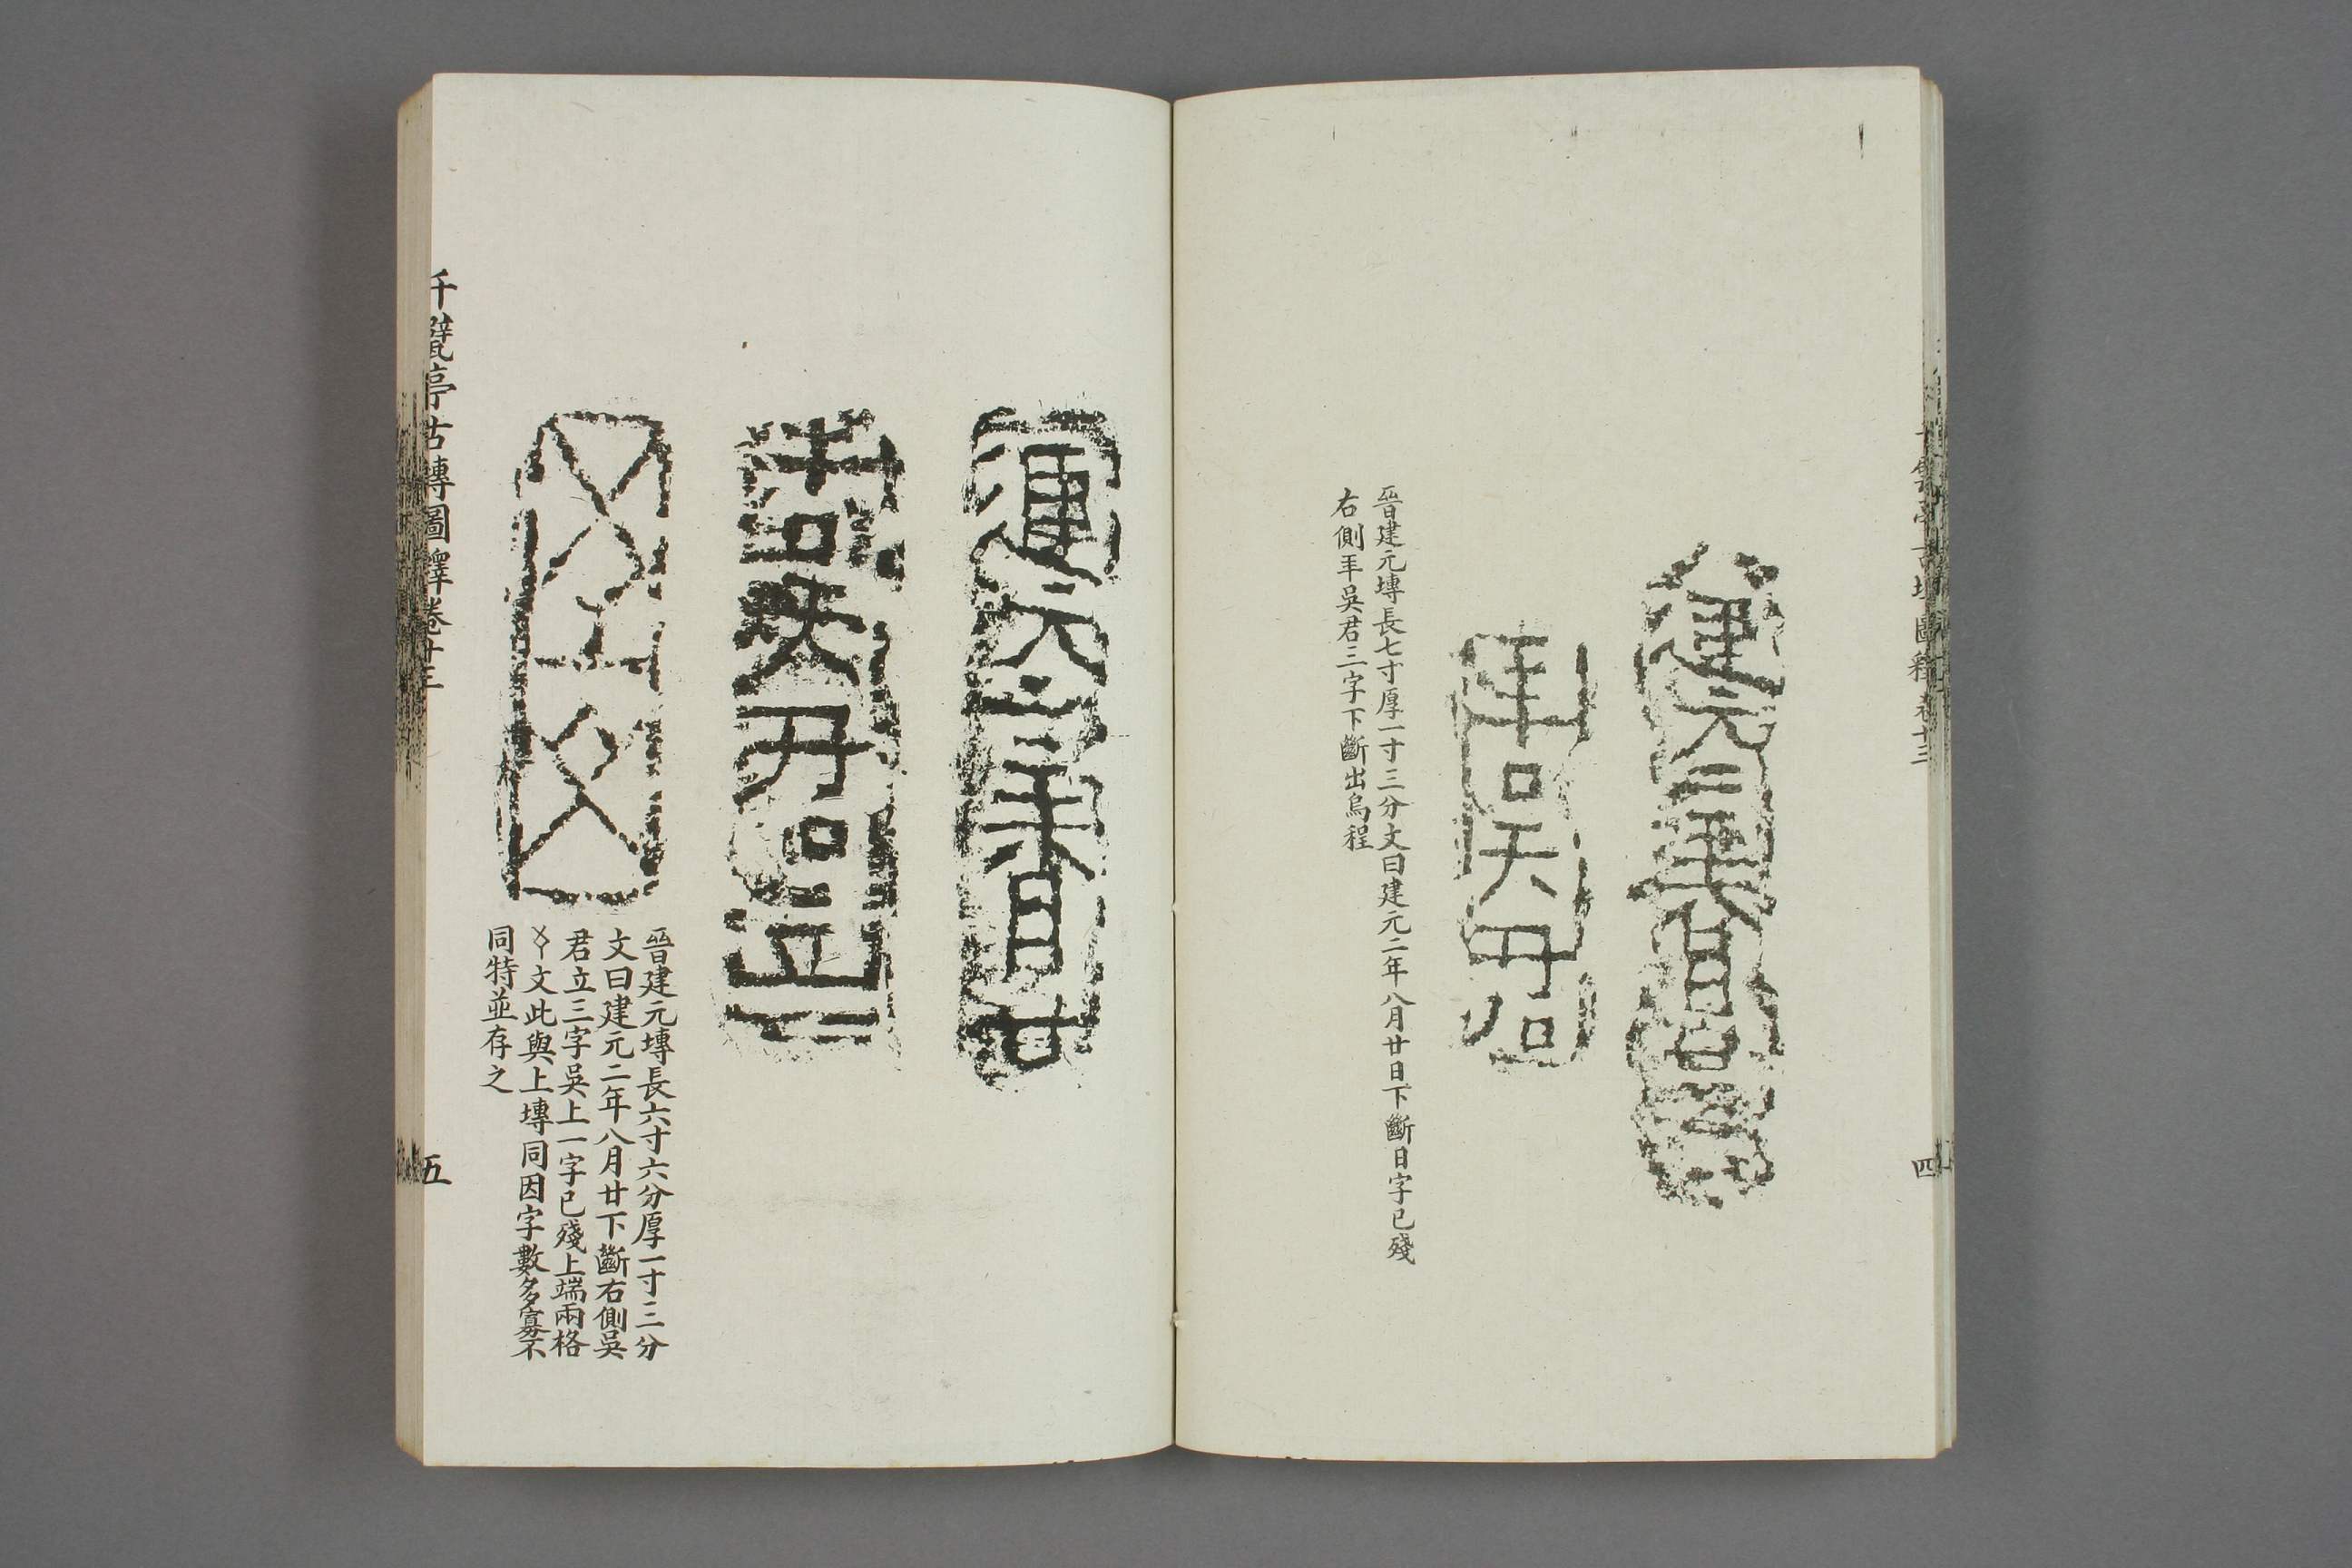 建元二年八月廿日
年吳君
晉建元塼長七寸厚一寸三分文曰建元二年八月廿日下斷日字已殘
右側年吳君三字下斷出烏程
四
建元二年八月廿
吳君立
晉建元塼長六寸六分厚一寸三分
文曰建元二年八月廿下斷右側吳
君立三字吳上一字已殘上端兩格
文此與上塼同因字數多寡不
同特並存之
千甓亭古塼圖釋卷十三
五